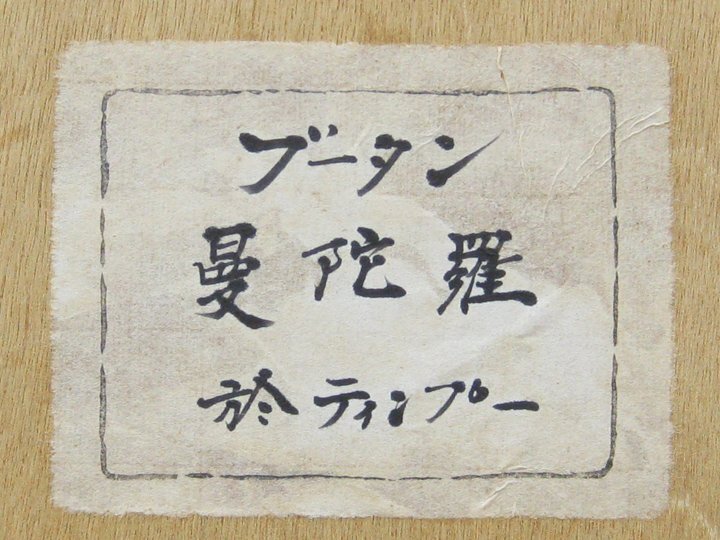 ブータン
曼陀羅
於ティンプー